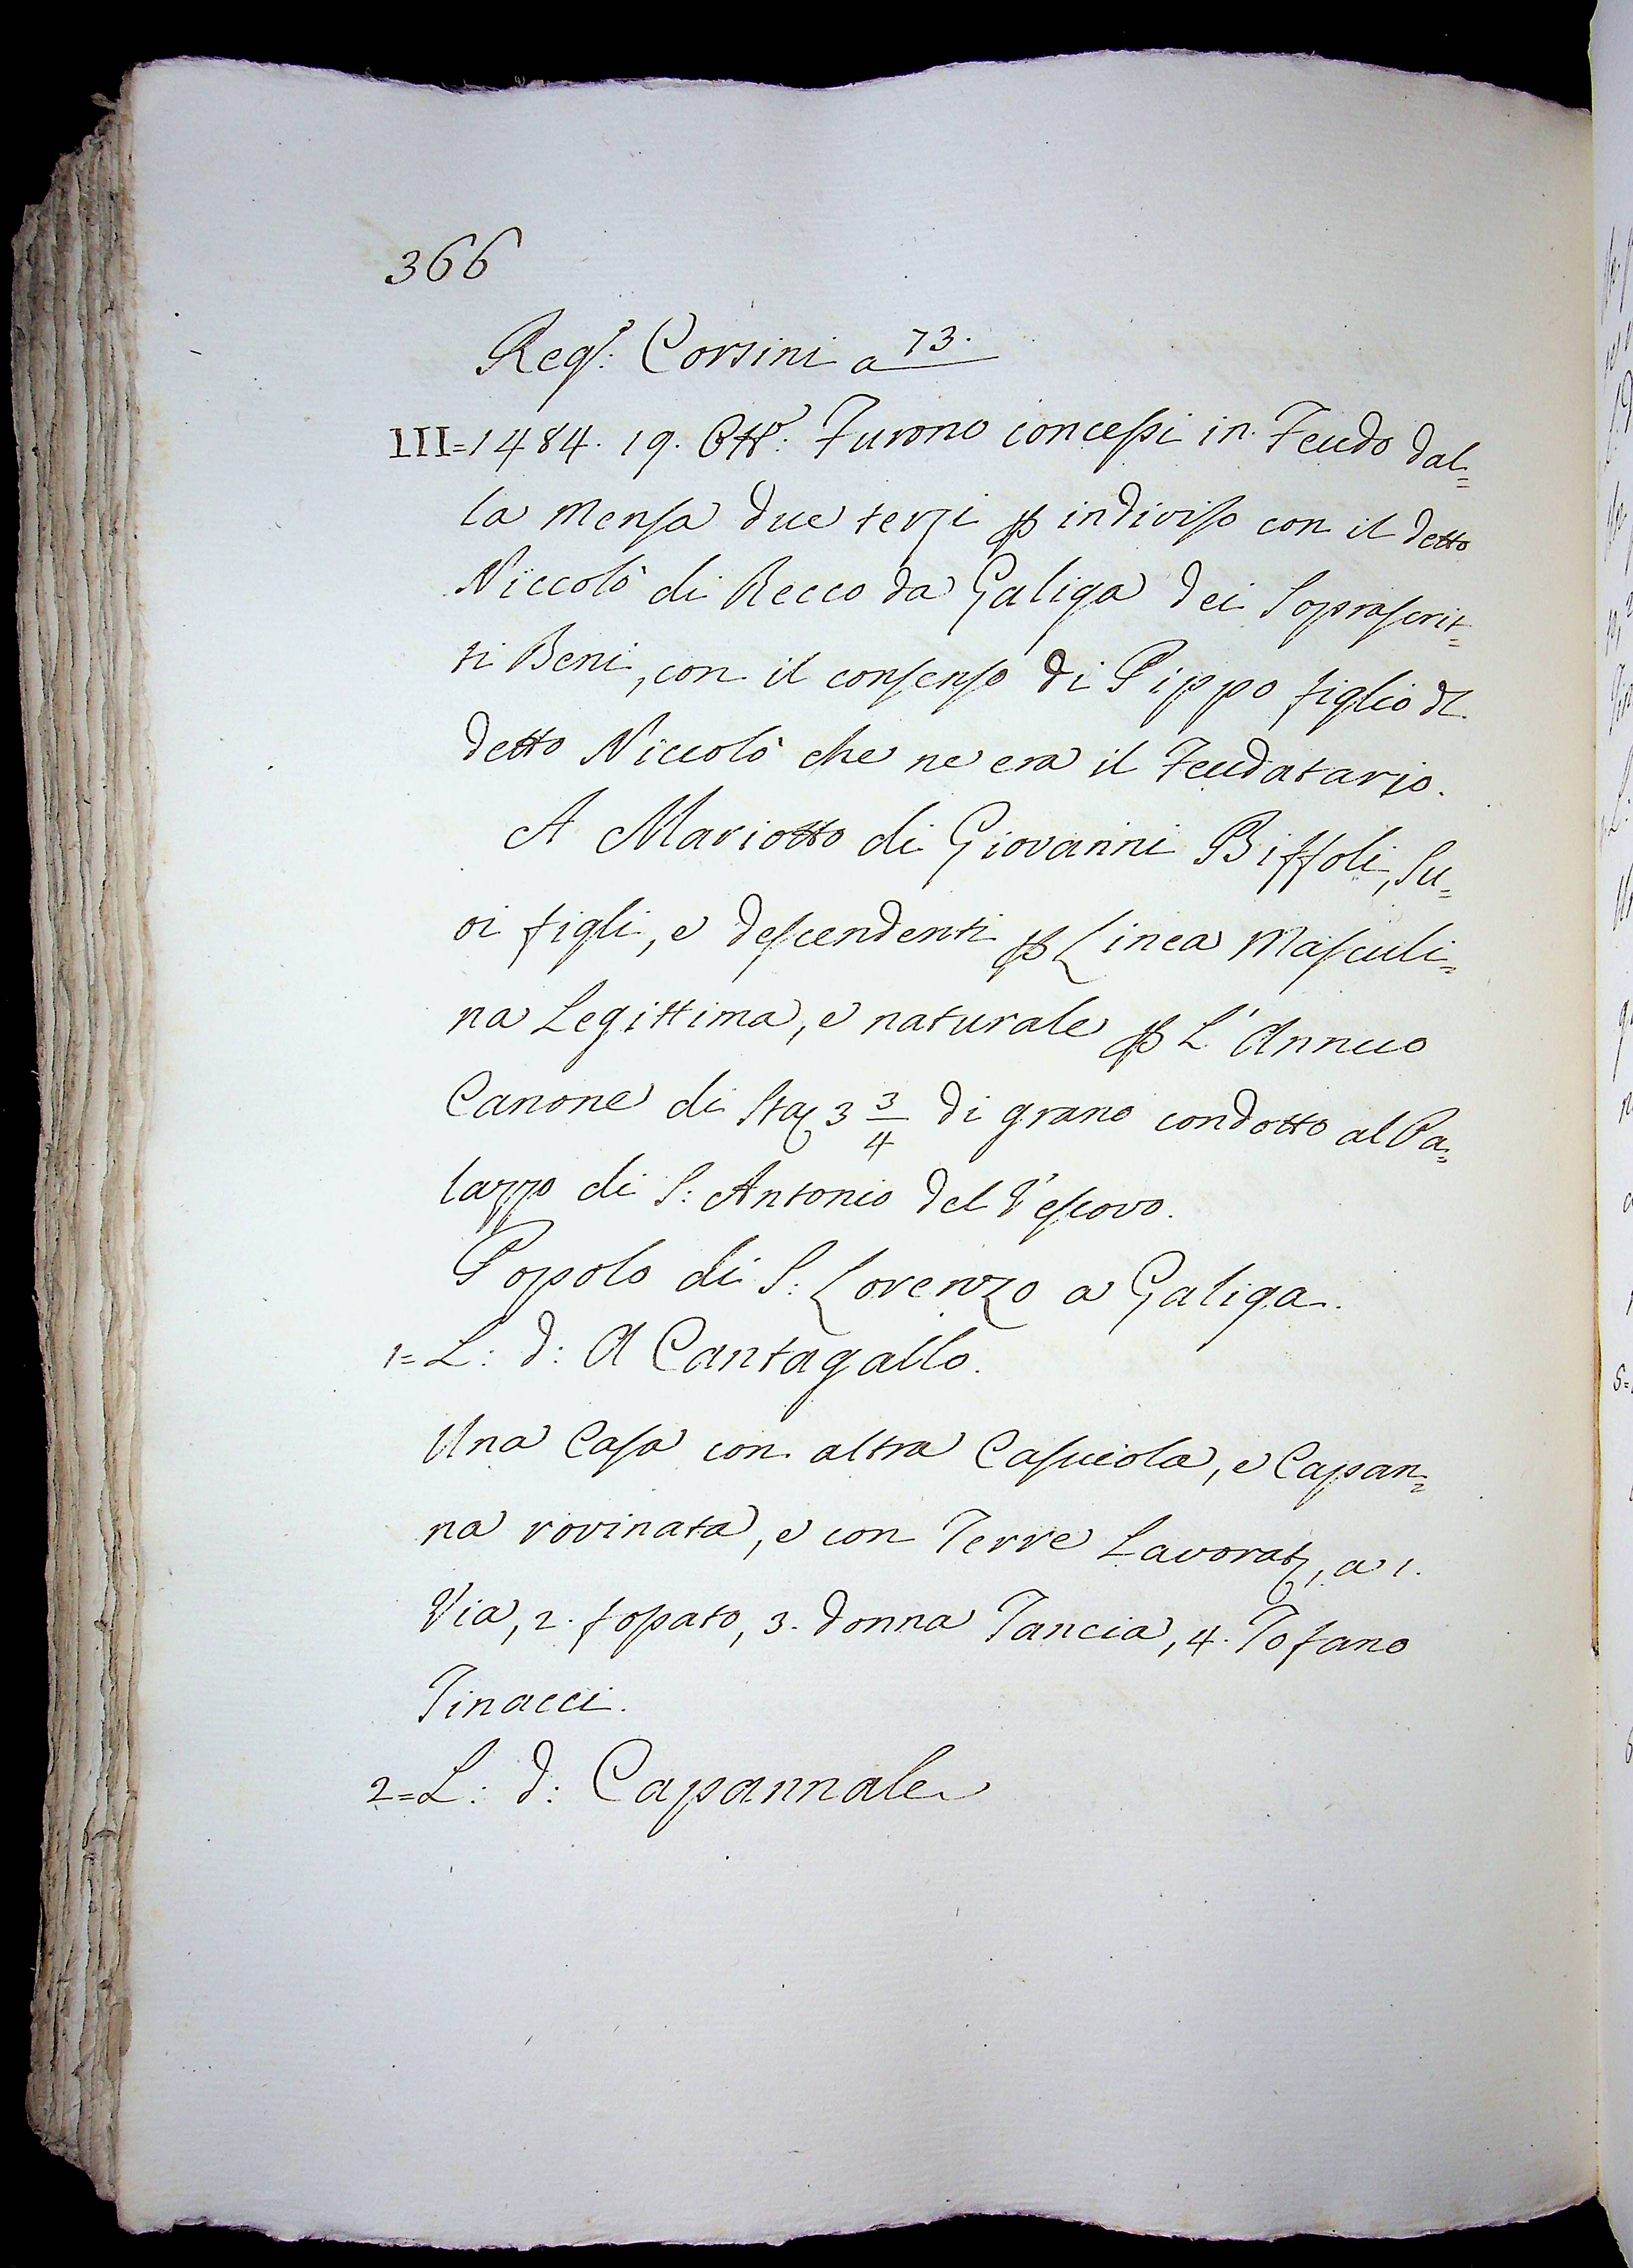 366
Reg.º: Corsini a 73.
III=1484. 19. Ott.e: Furono concessi in Feudo dal=
la Mensa due terzi ꝑ indiviso con il detto
Niccolò di Becco da Galiga dei Soprascrit=
ti Beni, con il consenso di Pippo figlio dl
detto Niccolò che ne era il Feudatario.
A Mariotto di Giovanni Biffoli, Su=
oi figli, e descendenti ꝑ Linea Masculi=
na Legittima, e naturale ꝑ L'Annuo
Canone di Sta 3 3/4 di grano condotto al Pa=
lazzo di S: Antonio del Vescovo.
Popolo di S: Lorenzo a Galiga.
1=L: d: A Cantagallo.
Una Casa con altra Casuciola, e Capan=
na rovinata, e con Terre Lavorat, a 1.
Via, 2. fossato, 3. Donna Tancia, 4. Tofano
Tinacci.
2=L: d: Capannale